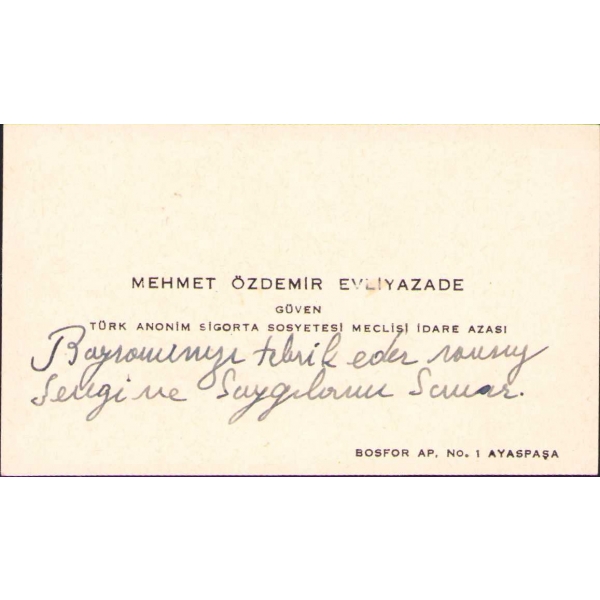 MEHMET ÖZDEMİR EVLİYAZADE
GÜVEN
TÜRK ANONİM SİGORTA SOSYETESİ MECLİSİ İDARE AZASI
Bayramınızı tebrik eder
Sevgi ve Saygılarını Sunar.
BOSFOR AP. No. 1 AYASPAŞA